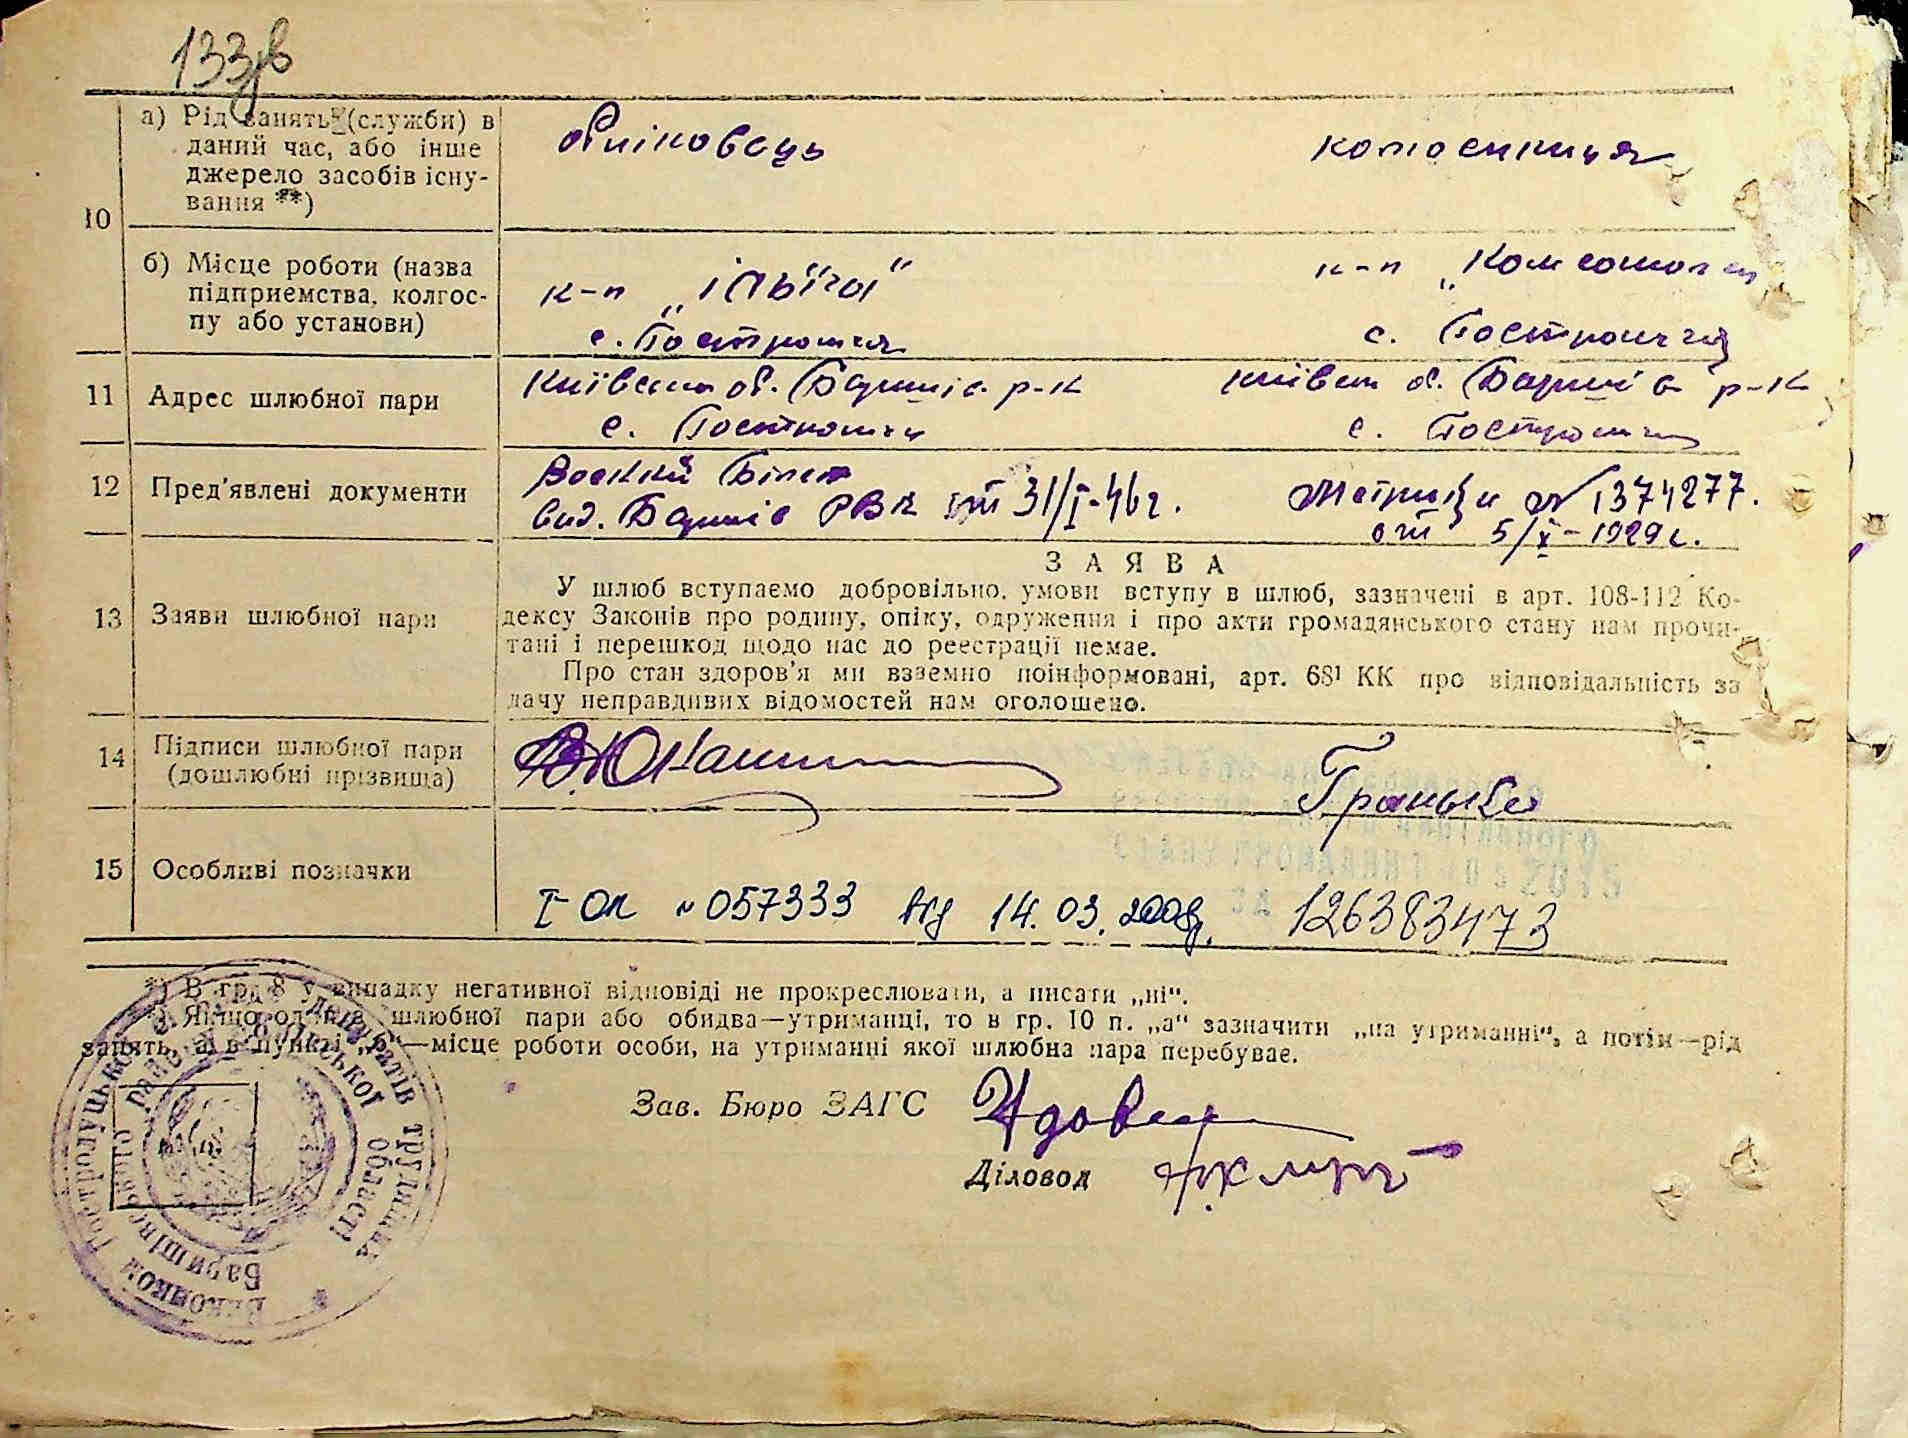 133
10
а) Рід занять (служби) в
даний час, або інше
джерело засобів існу-
вання **)
обліковець
колгоспниця
б) Місце роботи (назва
підприємства, колгос-
пу або установи)
к-п „Ілліча"
с. Гостролуччя
к-п „Комсомолец
с. Гостролуччя
11
Адрес шлюбної пари
Київська об. Баришів. р-к
с. Гостролуччя
Київськ об. Баришів р-к
с. Гостролуччя
12
Пред'явлені документи
Воєнний Білет
вид. Баришів РВК від 31/I-46 г.
Метрика № 1374277.
от 5/X-1929 г.
13
Заяви шлюбної пари
ЗАЯВА
У шлюб вступаємо добровільно, умови вступу в шлюб, зазначені в арт. 108-112 Ко-
дексу Законів про родину, опіку, одруження і про акти громадянського стану нам прочи-
тані і перешкод щодо нас до реєстрації немає.
Про стан здоров'я ми взаємно поінформовані, арт. 68¹ КК про відповідальність за
дачу неправдивих відомостей нам оголошено.
14
Підписи шлюбної пари
(дошлюбні прізвища)
15
Особливі позначки
I-ОК №057333 від 14.03.2008р. 126383473
*) В гр. 8 у випадку негативної відповіді не прокреслювати, а писати „ні".
Якщо один з шлюбної пари або обидва—утриманці, то в гр. 10 п. „а" зазначити „на утриманні", а потім—рід
занять, а в пункті „б"—місце роботи особи, на утриманні якої шлюбна пара перебуває.
Зав. Бюро ЗАГС
Діловод
Виконком Гостролуцької депутатів трудящих
Баришівського району Київської області